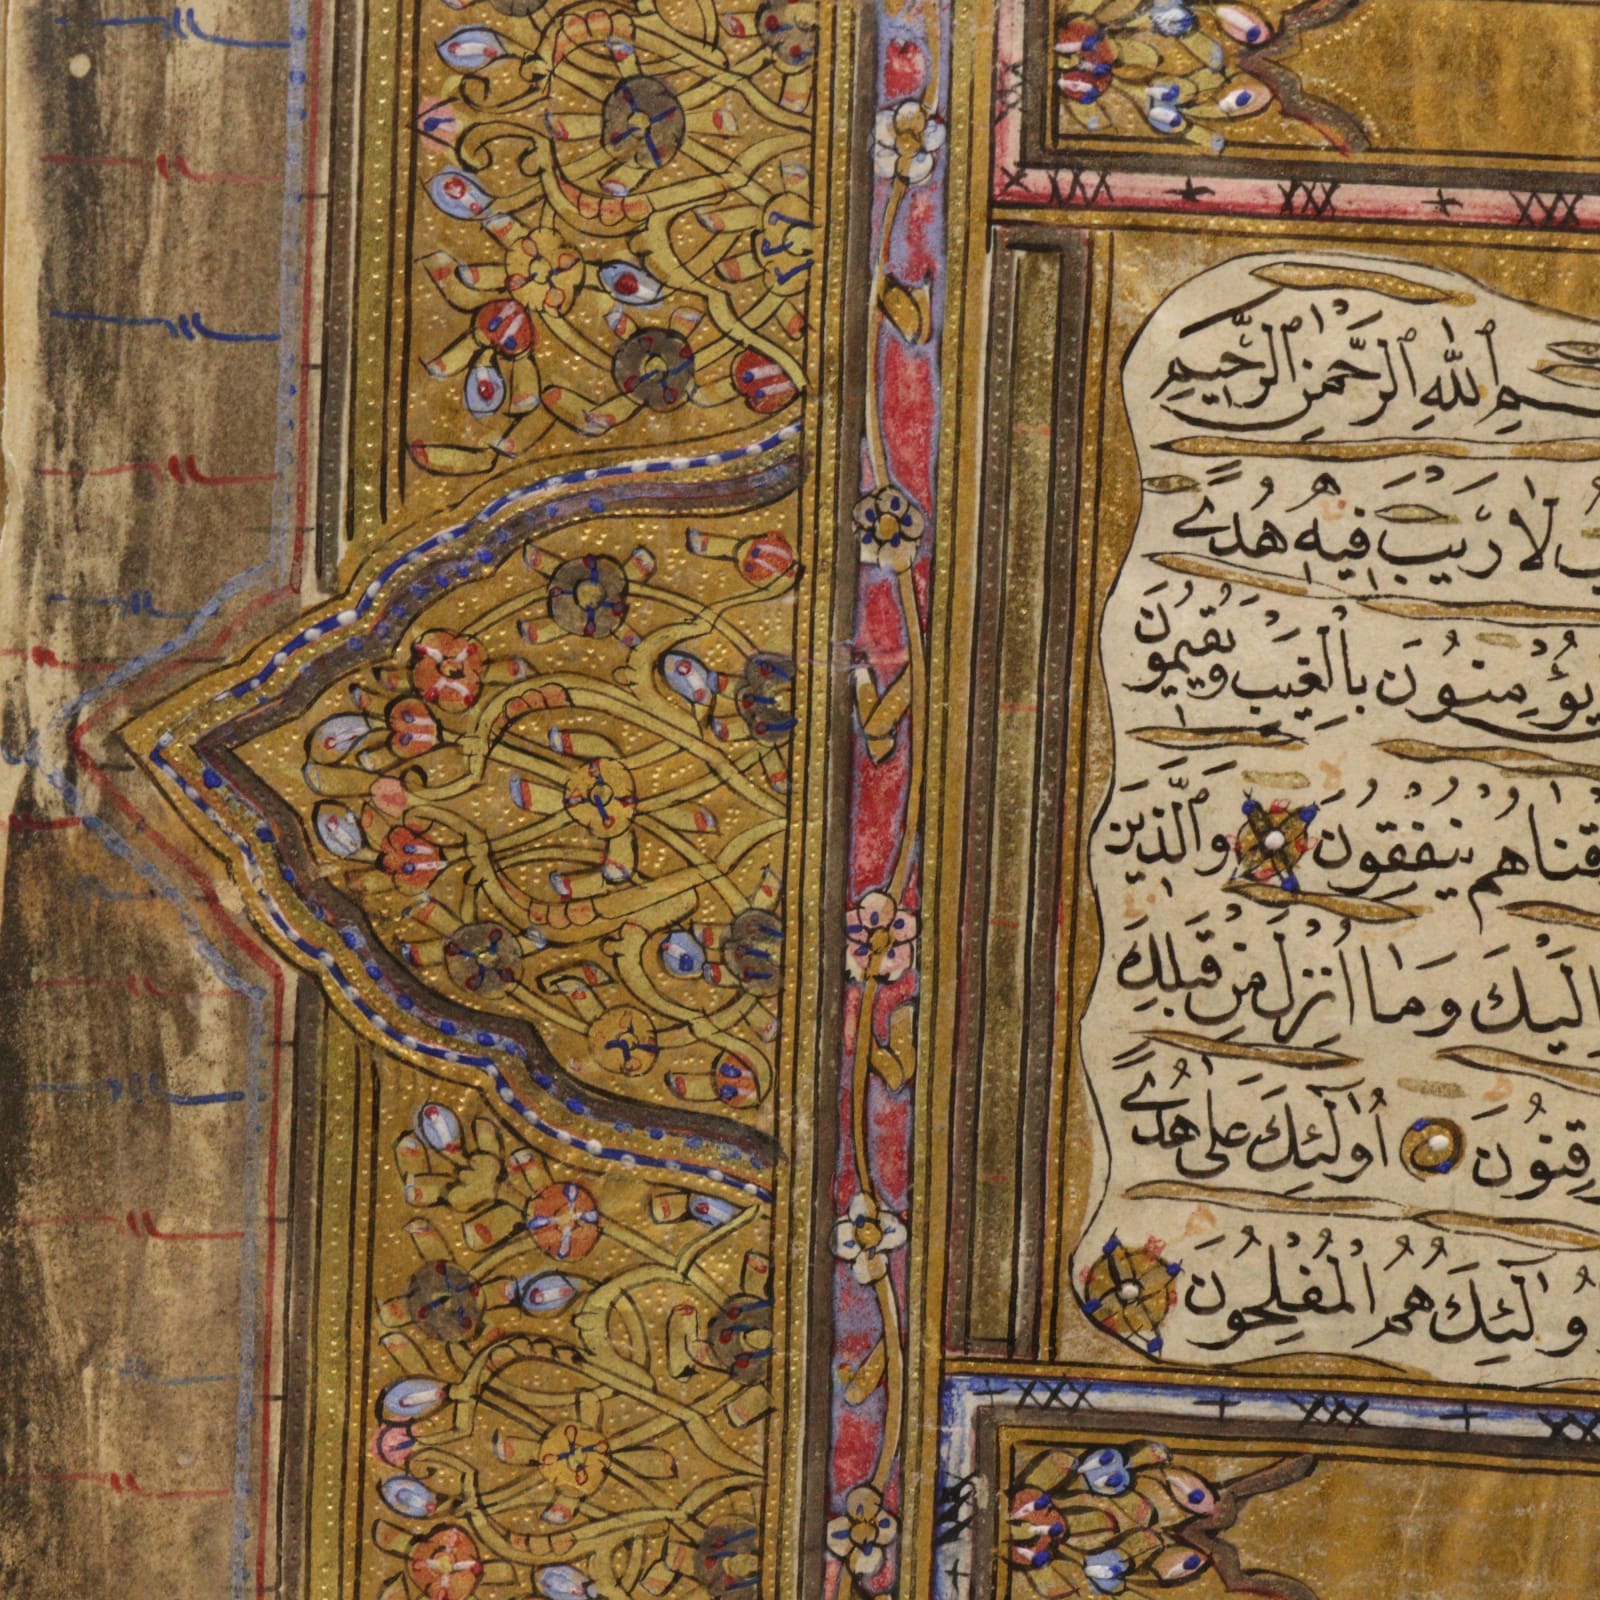 سمِ ٱللّٰهِ ٱلرَّحْمٰنِ ٱلرَّحيمِ
لَا رَيْبَ فيهِ هُدًى
يُؤْمِنُونَ بِالْغَيْبِ وَيُقيمُونَ
قْناهُمْ يُنْفِقُونَ وَٱلَّذينَ
اِلَيْكَ وَمَا اُنْزِلَ مِنْ قَبْلِكَ
قِنُونَ اُولٰئِكَ عَلٰى هُدًى
وُلٰئِكَ هُمُ الْمُفْلِحُونَ